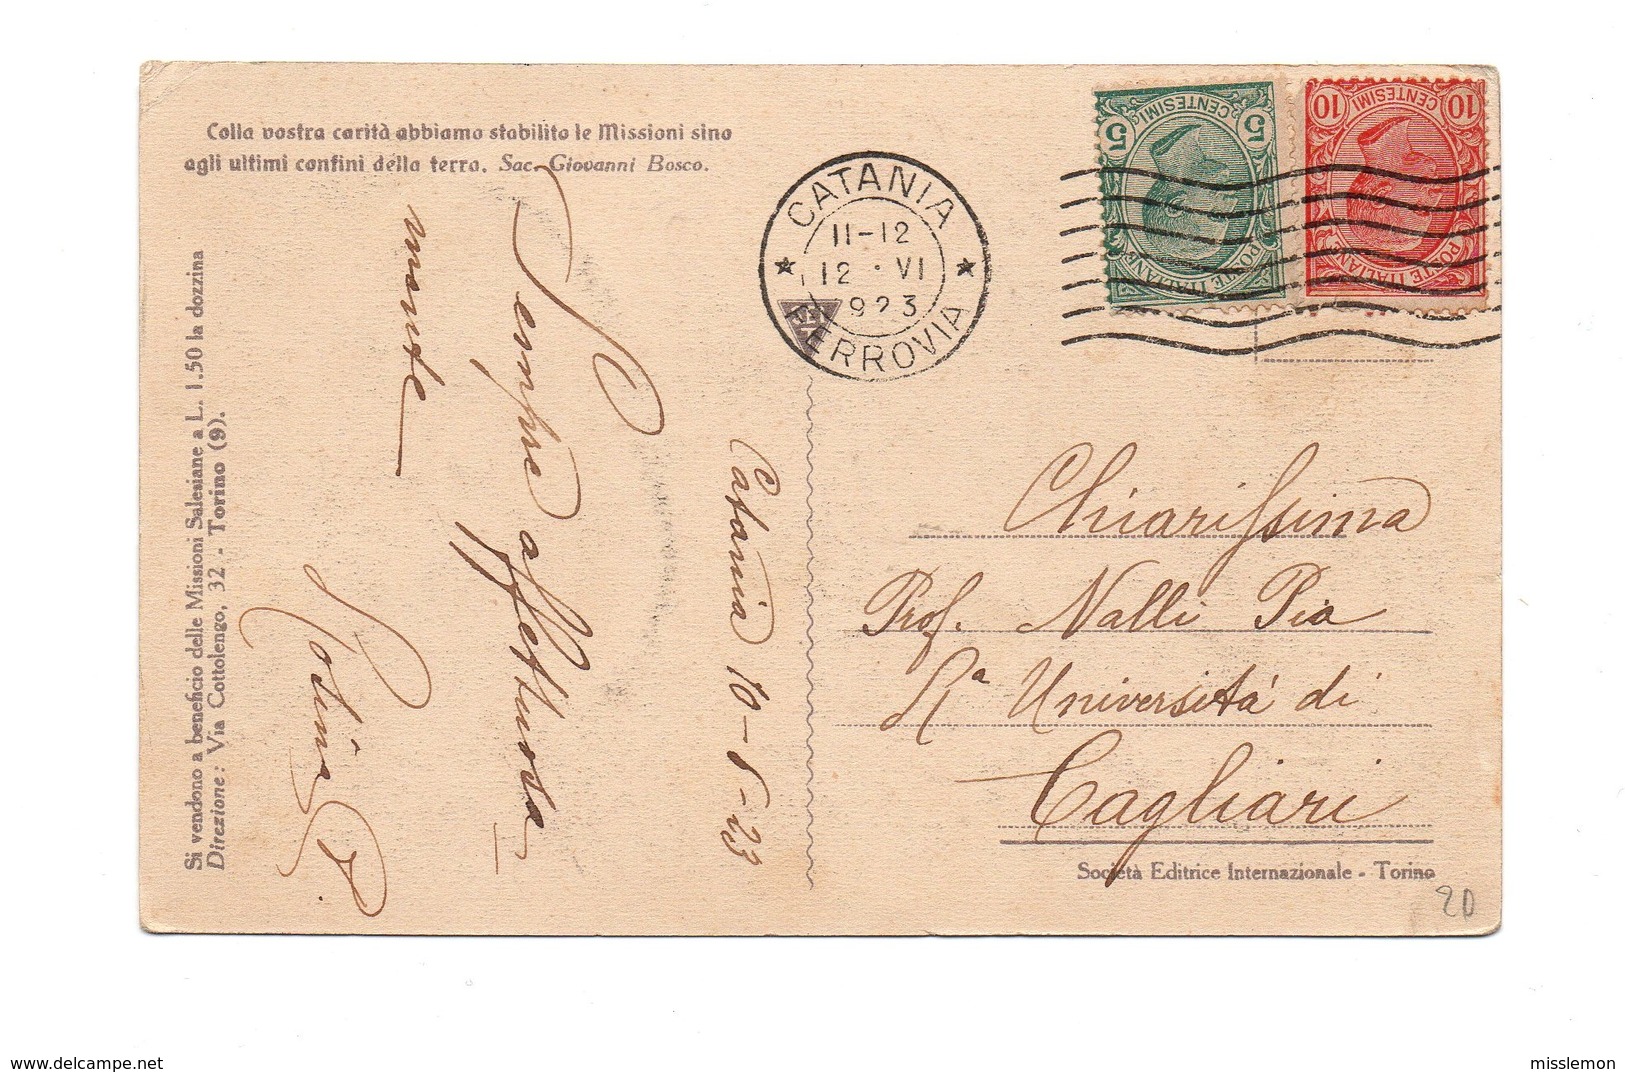 Colla vostra carità abbiamo stabilito le Missioni sino
agli ultimi confini della terra. Sac. Giovanni Bosco.
Si vendono a beneficio delle Missioni Salesiane a L. 1.50 la dozzina
Direzione: Via Cottolengo, 32 - Torino (9).
CATANIA
11-12
12 · VI
1923
FERROVIA
5 CENTESIMI 5
POSTE ITALIANE
10 CENTESIMI 10
POSTE ITALIANE
Catania 10-6-23
Sempre affettuosa
mente
P.
Chiarissima
Prof. Nalli Pia
Rª Università di
Cagliari
Società Editrice Internazionale - Torino
20
delcampe.net
misslemon